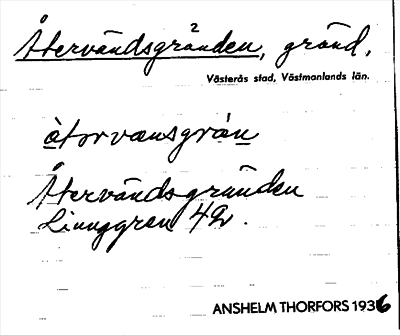 Återvändsgränden, gränd.
2
Västerås stad, Västmanlands län.
åtərvænsgrän
Återvändsgränden
Linnggren 42.
ANSHELM THORFORS 1936